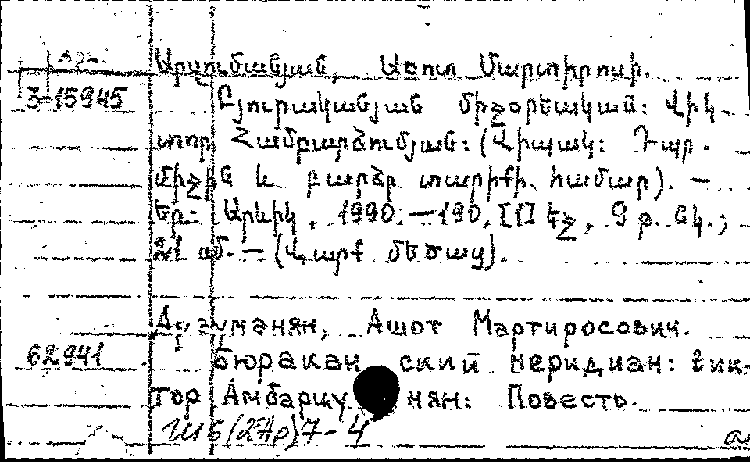 Արզումանյան, Աշոտ Մարտիրոսի.
3-15945 Բյուրականյան միջօրեական: Վիկ-
տոր Համբարձումյան: (Վիպակ: Դպր.
միջին և բարձր տարիքի համար). —
Եր.: Արևիկ, 1990. — 190, [1] էջ, 9 թ. նկ.;
21 սմ. — (Վարք մեծաց).
Арзуманян, Ашот Мартиросович.
62941 Бюраканский меридиан: Вик-
тор Амбарцумян: Повесть.
Ш6(2Ар)7-4